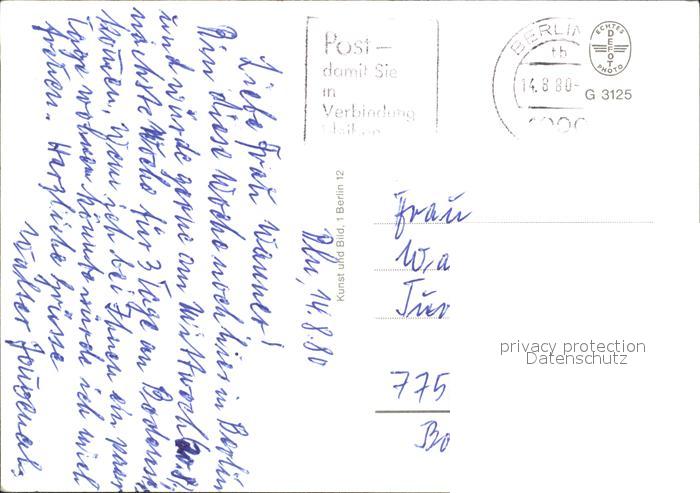 Post –
damit Sie
in
Verbindung
bleiben
BERLIN
tb
14.8.80-
1000
ECHTES
DEFOT
PHOTO
G 3125
Bln, 14.8.80
Liebe Frau Wanner!
Bin diese Woche noch hier in Berlin
und würde gerne am Mittwoch 20.8.
nächste Woche für 3 Tage an Bodensee
kommen. Wenn ich bei Ihnen ein paar
Tage wohnen könnte würde ich mich
freuen. Herzliche Grüsse
Walter
Kunst und Bild, 1 Berlin 12
Frau
Wa
775
privacy protection
Datenschutz